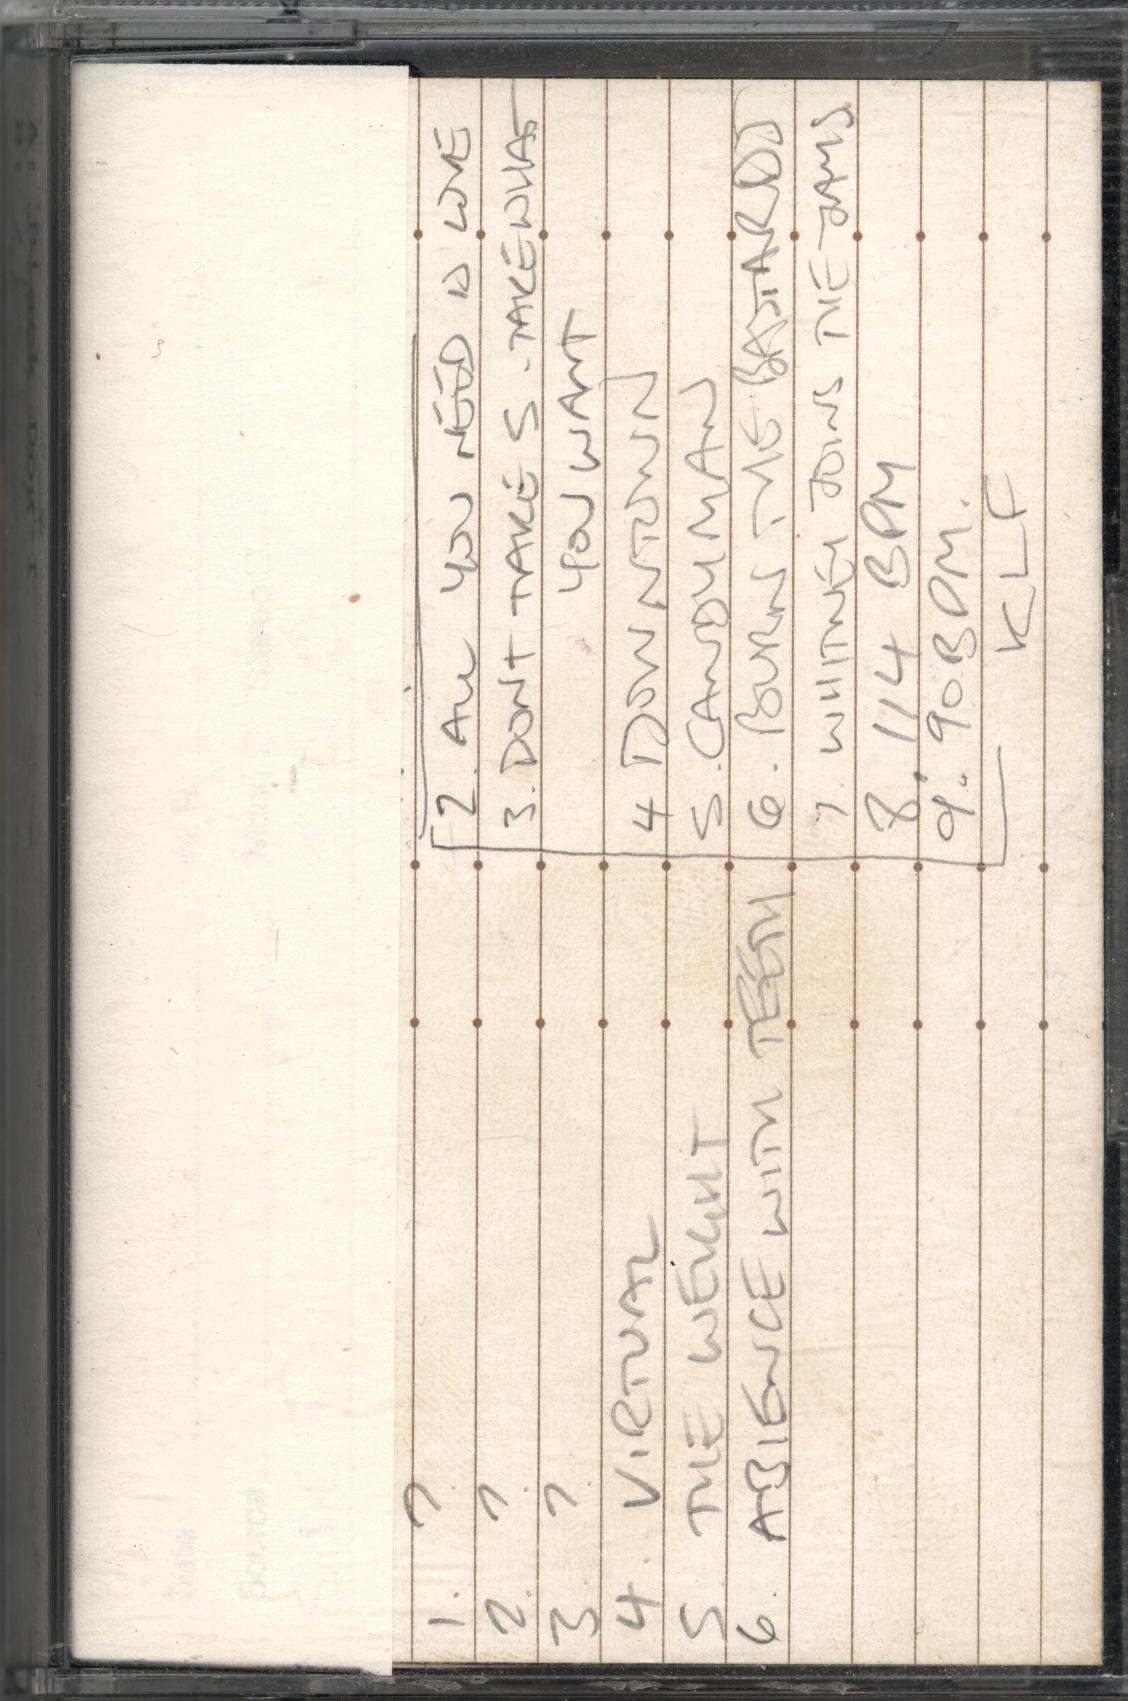 1. ?
2. ?
3. ?
4. VIRTUAL
5. THE WEIGHT
6. ABIENCE WITH TEETH
2. ALL YOU NEED IS LOVE
3. DON'T TAKE 5 - TAKE WHAT
YOU WANT
4 DOWNTOWN
5. CANDYMAN
6. BURN THE BASTARDS
7. WHITNEY JOINS THE JAMS
8. 114 BPM
9. 90 BPM.
KLF